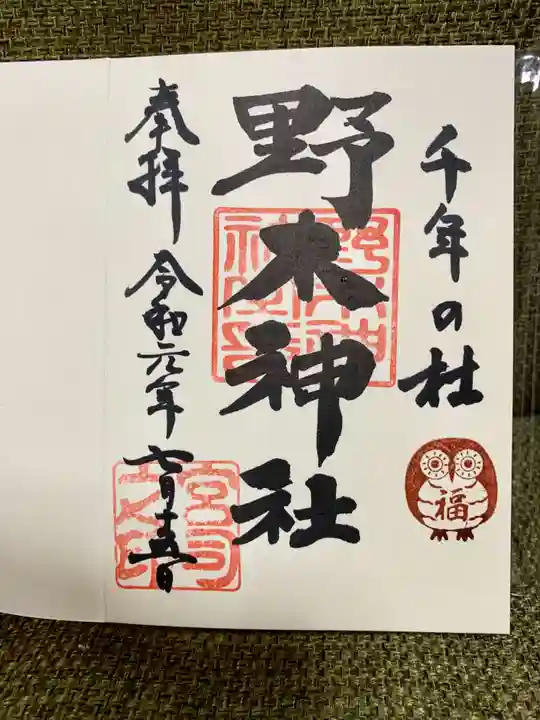 千年の杜
福
野木神社
野木神社印
奉拝 令和元年七月十五日
宮司之印